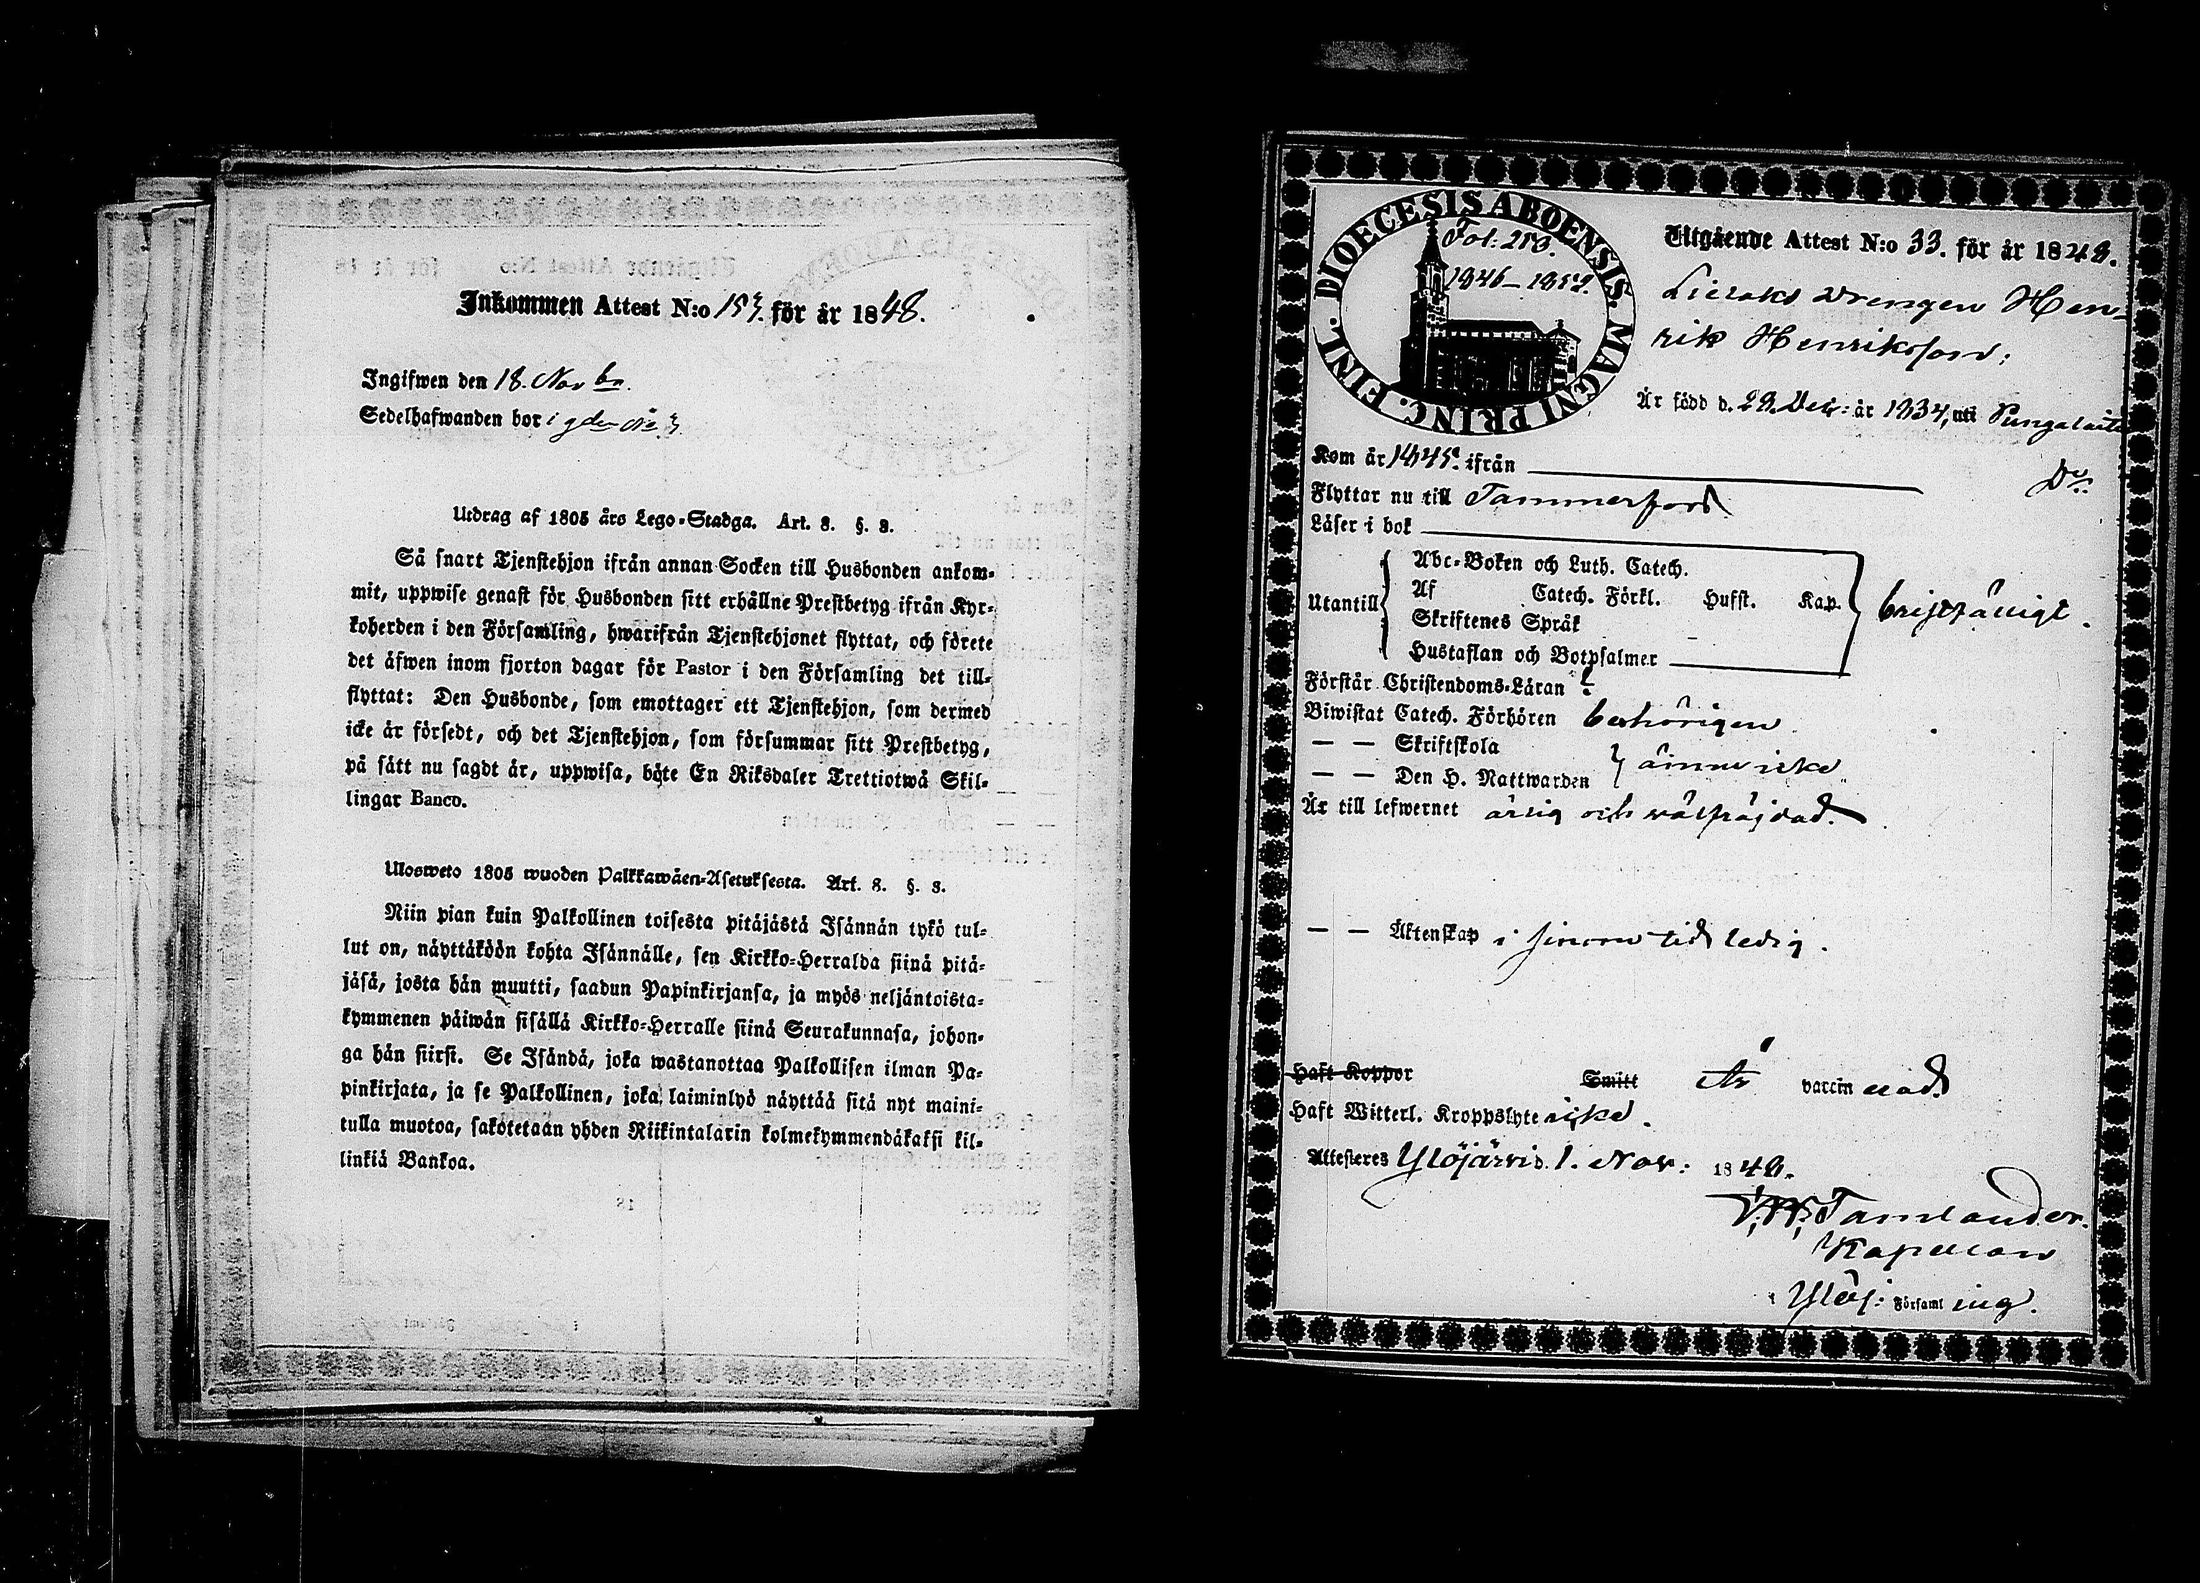 Inkommen Attest N:o 153. för år 1848.
Ingifwen den 18. Novbr.
Sedelhafwanden bor i gden No 3
Utdrag af 1805 års Lego-Stadga. Art. 8. §. 8.
Så snart Tjenstehjon ifrån annan Socken till Husbonden ankom-
mit, uppwise genast för Husbonden sitt erhållne Prestbetyg ifrån Kyr-
koherden i den Församling, hwarifrån Tjenstehjonet flyttat, och förete
det äfwen inom fjorton dagar för Pastor i den Församling det till-
flyttat: Den Husbonde, som emottager ett Tjenstehjon, som dermed
icke är försedt, och det Tjenstehjon, som försummar sitt Prestbetyg,
på sätt nu sagdt är, uppwisa, böte En Riksdaler Trettiotwå Skil-
lingar Banco.
Ulosweto 1805 wuoden Palkkawäen-Asetuksesta. Art. 8. §. 8.
Niin pian kuin Palkollinen toisesta pitäjästä Isännän tykö tul-
lut on, näyttäköön kohta Isännälle, sen Kirkko-Herralda siinä pitä-
jäsä, josta hän muutti, saadun Papinkirjansa, ja myös neljäntoista-
kymmenen päiwän sisällä Kirkko-Herralle siinä Seurakunnasa, johon-
ga hän siirsi. Se Isändä, joka wastanottaa Palkollisen ilman Pa-
pinkirjata, ja se Palkollinen, joka laiminlyö näyttää sitä nyt maini-
tulla muotoa, sakotetaan yhden Riikintalarin kolmekymmendäkaksi kil-
linkiä Bankoa.
DIOECESIS ABOENSIS. MAGNI PRINC. FINL.
Fol: 213.
1846–1852.
Utgående Attest N:o 33. för år 1848.
drengen Hen-
rik Henriksson:
Är född d. 29. Dec: år 1834, uti Pungalaitio
Kom år 1845. ifrån
Flyttar nu till Tammerfors
Läser i bok
Utantill
Abc-Boken och Luth. Catech.
Af Catech. Förkl. Hufst. Kap.
Skriftenes Språk
Hustaflan och Botpsalmer
bristfälligt.
Förstår Christendoms-Läran
Biwistat Catech. Förhören behörigen
— — Skriftskola
— — Den H. Nattwarden
ännu icke
Är till lefwernet ärlig och välfräjdad.
— — Äktenskap i sinom tid ledig.
Haft Koppor Smitt Är vaccinerad.
Haft Witterl. Kroppslyte icke.
Attesteres Ylöjärvi d. 1. Nov: 1848.
Tamlander.
Kapellan
i Ylöj: Församling.